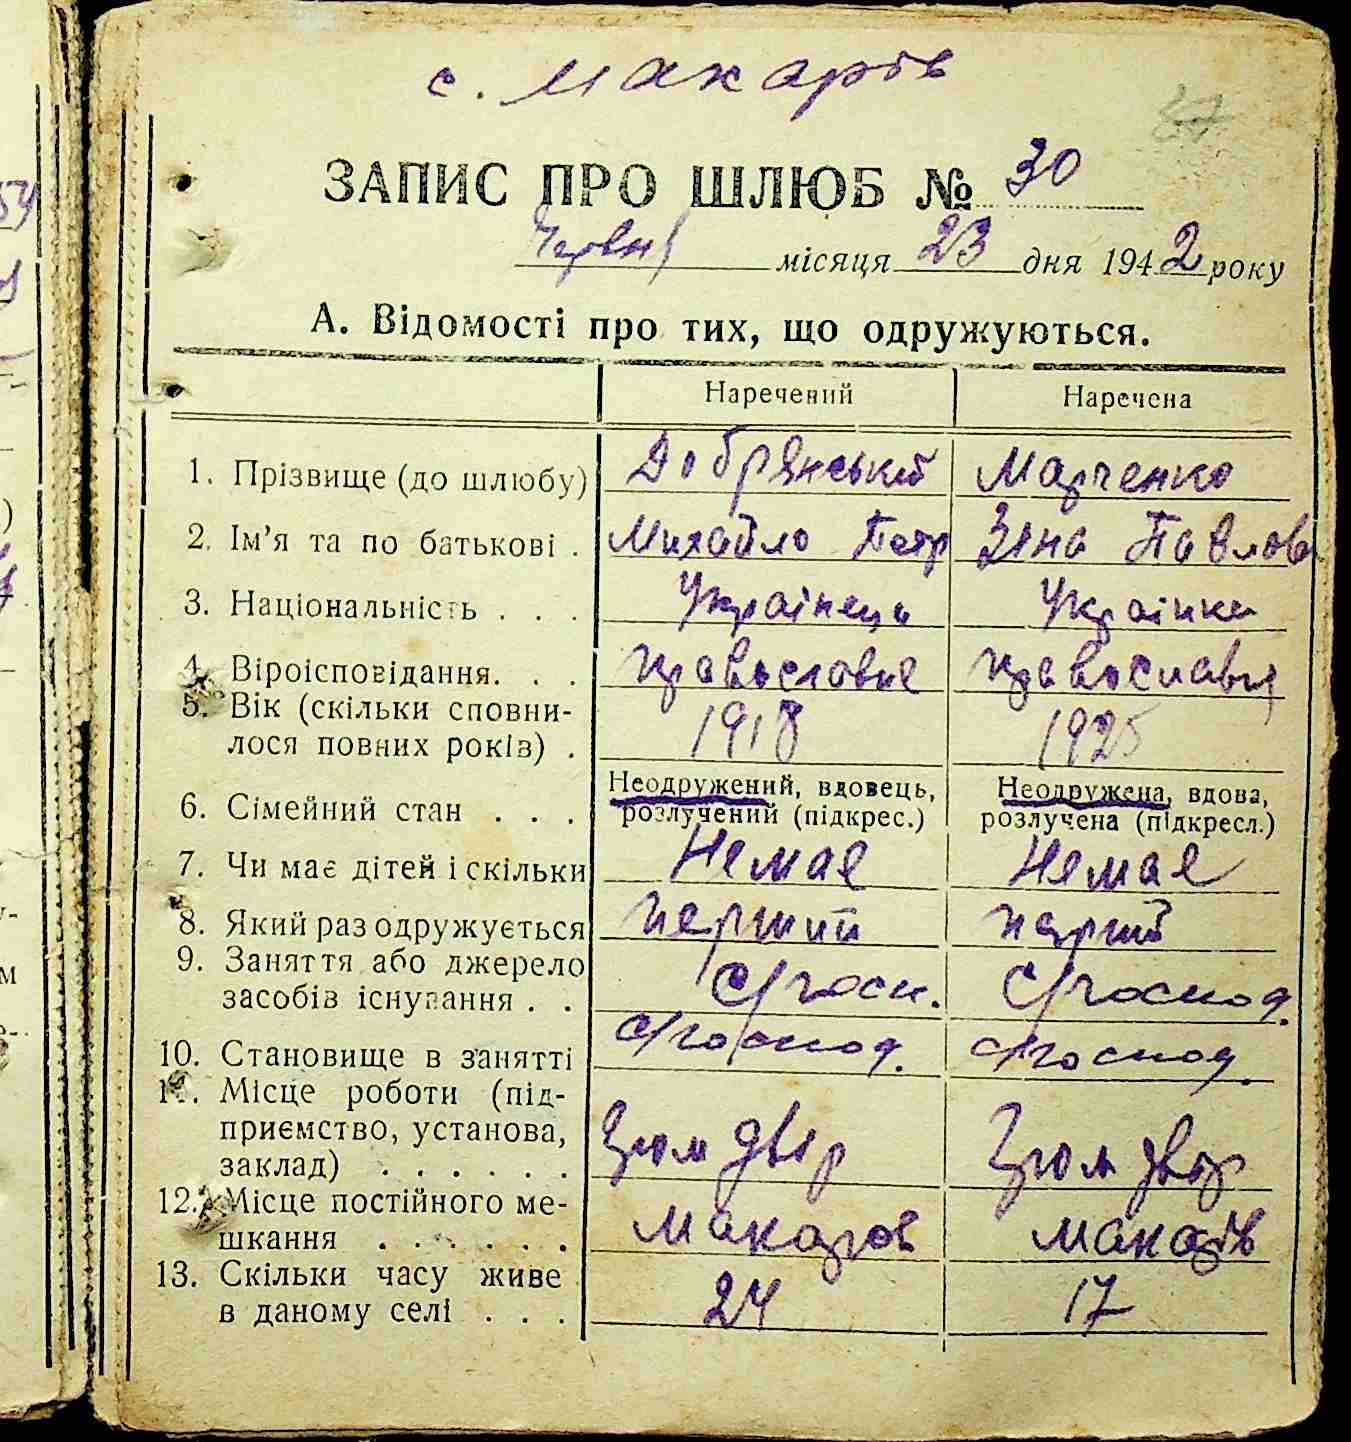 с. Макарів
37
ЗАПИС ПРО ШЛЮБ № 30
Червня місяця 23 дня 1942 року
А. Відомості про тих, що одружуються.
Наречений Наречена
1. Прізвище (до шлюбу) Добрянський Марченко
2. Ім'я та по батькові . Михайло Петр Зіна Павлов
3. Національність . . . Українець Українка
4. Віроісповідання. . . православне православня
5. Вік (скільки сповни-
лося повних років) . 1918 1925
Неодружений, вдовець, Неодружена, вдова,
6. Сімейний стан . . . розлучений (підкрес.) розлучена (підкресл.)
7. Чи має дітей і скільки Немає Немає
8. Який раз одружується перший перший
9. Заняття або джерело
засобів існування . . С/госп. С/господ.
10. Становище в занятті С/господ. С/господ.
11. Місце роботи (під-
приємство, установа,
заклад) . . . . . . Гром двір Гром двор
12. Місце постійного ме-
шкання . . . . . . Макаров Макарів
13. Скільки часу живе
в даному селі . . . 24 17
54
)
у-
м
е-.